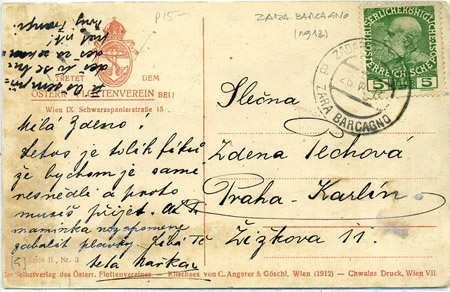 P15-
ZARA BARCAGNO
(1913)
TRETET DEM
ÖSTERR. FLOTTENVEREIN BEI!
Wien IX. Schwarzspanierstraße 15
KAISERLICHEKÖNIGLICHE
ÖSTERREICHISCHE
5 5
ZARA BARCAGNO
Slečna
Zdena Pechová
Praha-Karlín.
Žižkova 11.
Milá Zdeno!
Letos je tolik fíků
že bychom je samé
nesnědli a proto
musíš přijet. Ať Tě
maminka nezapomene
zabalit plavky. Líbá Tě
teta
Serie II, Nr. 3
Im Selbstverlag des Österr. Flottenvereines - Klischees von C. Angerer & Göschl, Wien (1912) - Chwalas Druck, Wien VII.